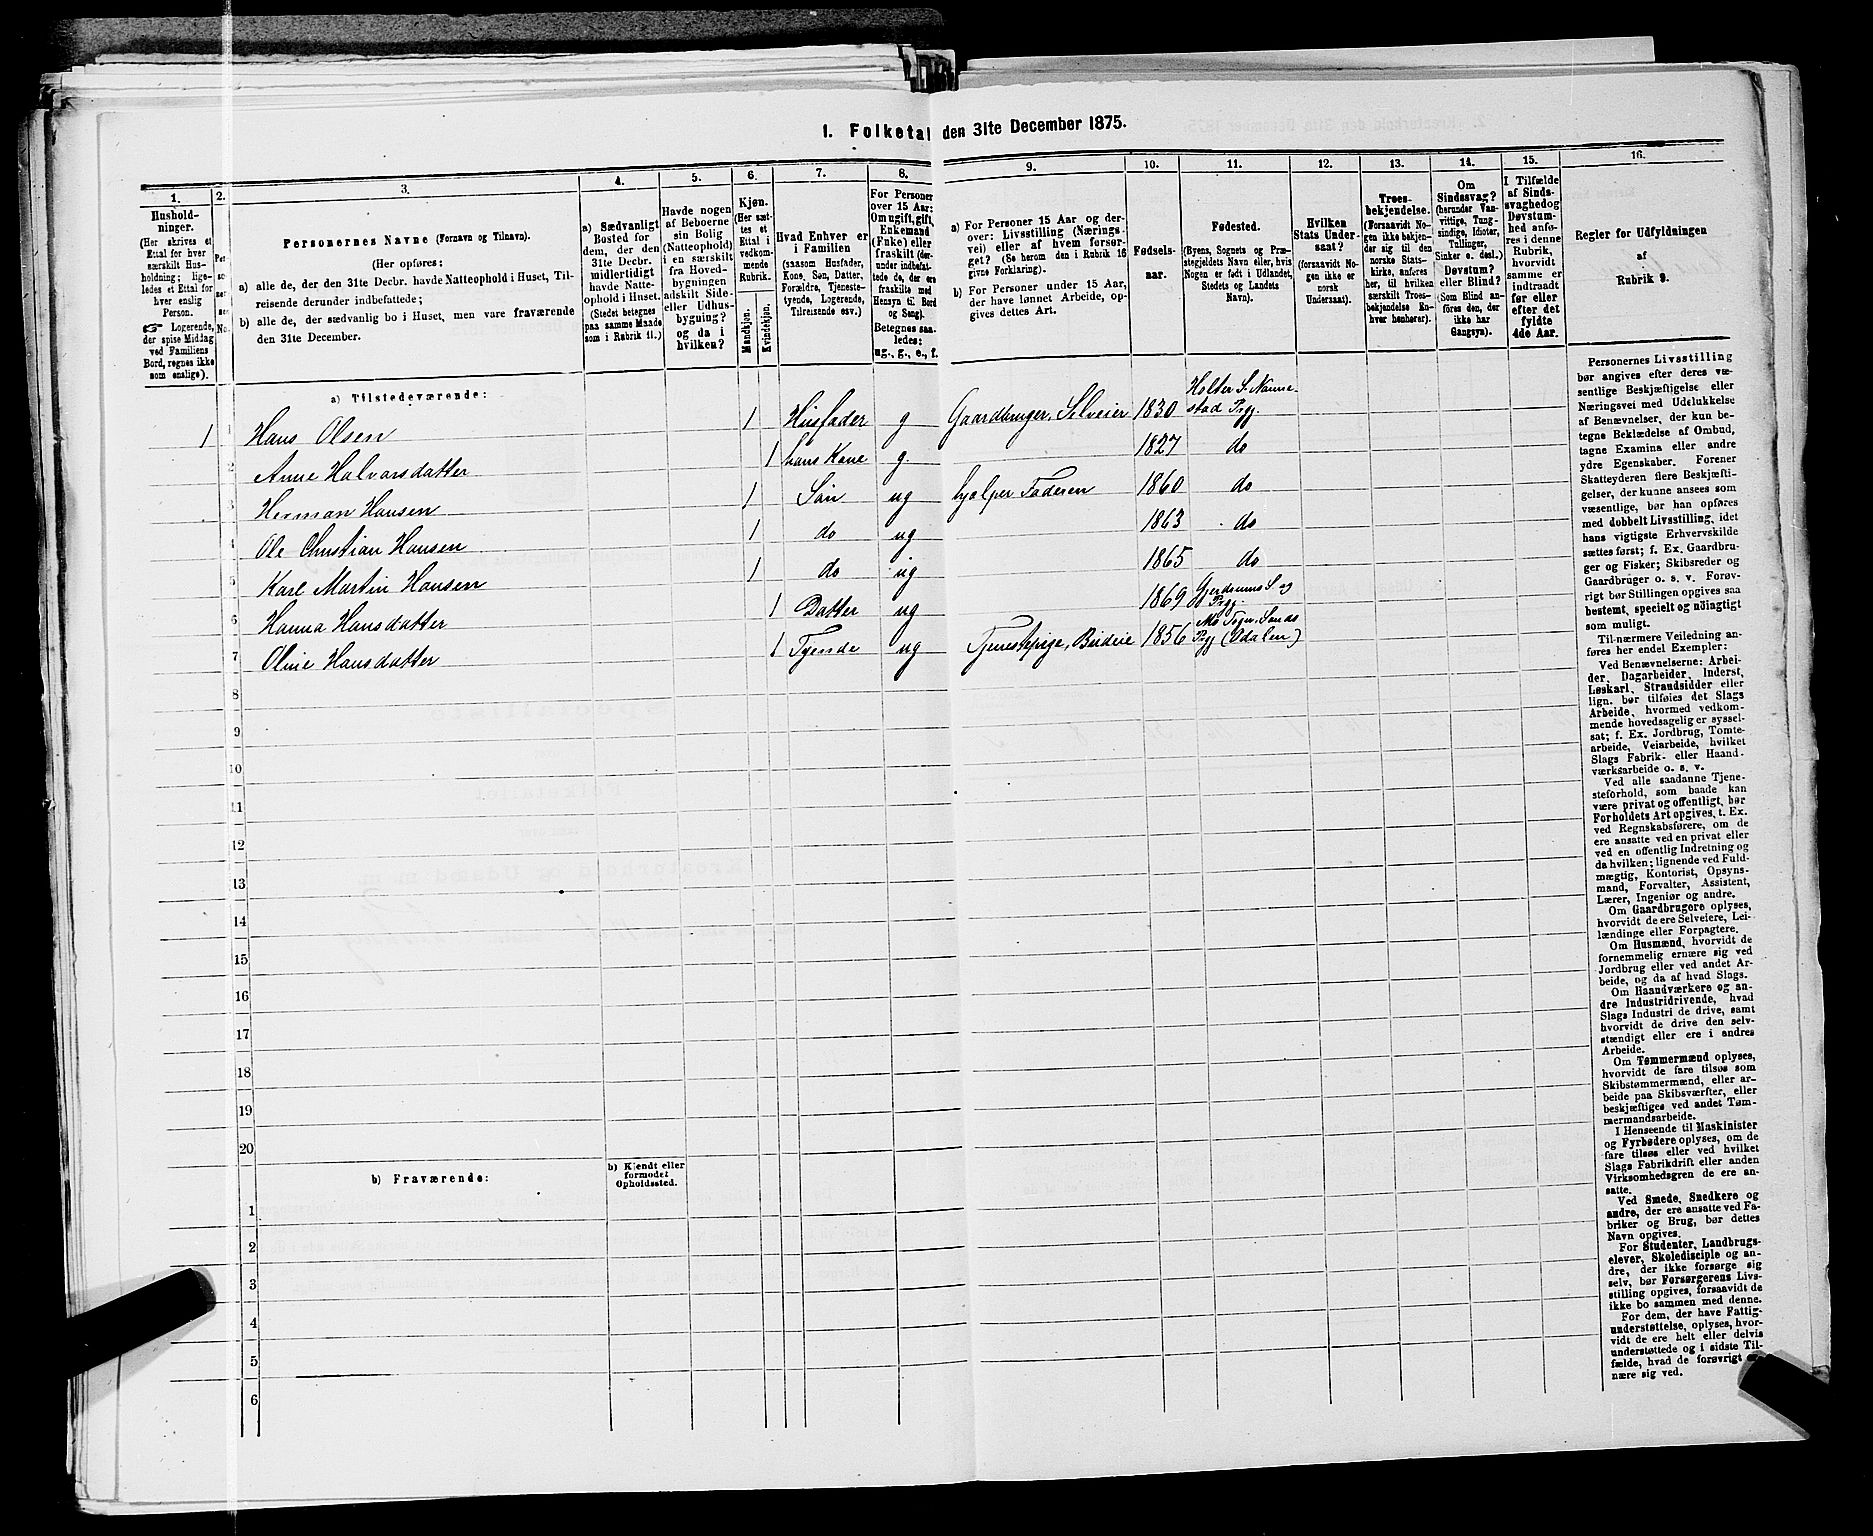 1. Folketal den 31te December 1875.
1. 2. 3. 4. 5. 6. 7. 8. 9. 10. 11. 12. 13. 14. 15. 16.
Hushold-
ninger.
(Her skrives et
Ettal for hver
særskilt Hus-
holdning; lige-
ledes et Ettal for
hver enslig
Person.
☞ Logerende,
der spise Middag
ved Familiens
Bord, regnes ikke
som enslige).
Per-
so-
ner-
nes
No.
Personernes Navne (Fornavn og Tilnavn).
(Her opføres:
a) alle de, der den 31te Decbr. havde Natteophold i Huset, Til-
reisende derunder indbefattede;
b) alle de, der sædvanlig bo i Huset, men vare fraværende
den 31te December.
a) Sædvanligt
Bosted for
dem, der den
31te Decbr.
midlertidigt
havde Natte-
ophold i Huset.
(Stedet betegnes
paa samme Maade
som i Rubrik 11.)
Havde nogen
af Beboerne
sin Bolig
(Natteophold)
i en særskilt
fra Hoved-
bygningen
adskilt Side-
eller Udhus-
bygning?
og da i
hvilken?
Kjøn.
(Her sæt-
tes et
Ettal i
vedkom-
mende
Rubrik.
Mandkjøn.
Kvindekjøn.
Hvad Enhver er
i Familien
(saasom Husfader,
Kone, Søn, Datter,
Forældre, Tjeneste-
tyende, Logerende,
Tilreisende osv.)
For Personer
over 15 Aar:
Om ugift, gift,
Enkemand
(Enke) eller
fraskilt (der-
under indbefat-
tede de, der ere
fraskilte med
Hensyn til Bord
og Seng).
Betegnes saa-
ledes:
ug., g., e., f.
a) For Personer 15 Aar og der-
over: Livsstilling (Nærings-
vei) eller af hvem forsør-
get? (Se herom den i Rubrik 16
givne Forklaring).
b) For Personer under 15 Aar,
der have lønnet Arbeide, op-
gives dettes Art.
Fødsels-
aar.
Fødested.
(Byens, Sognets og Præ-
stegjeldets Navn eller, hvis
Nogen er født i Udlandet,
Stedets og Landets
Navn).
Hvilken
Stats Under-
saat?
(forsaavidt No-
gen ikke er
norsk
Undersaat).
Troes-
bekjendelse.
(Forsaavidt No-
gen ikke bekjen-
der sig til den
norske Stats-
kirke, anføres
her, til hvilken
særskilt Troes-
bekjendelse En-
hver henhører).
Om
Sindssvag?
(herunder Van-
vittige, Tung-
sindige, Idioter,
Tullinger,
Sinker o. desl.)
Døvstum?
eller Blind?
(Som Blind an-
føres den, der
ikke har
Gangsyn).
I Tilfælde
af Sinds-
svaghed og
Døvstum-
hed anfø-
res i denne
Rubrik,
hvorvidt
samme er
indtraadt
før eller
efter det
fyldte
4de Aar.
Regler for Udfyldningen
af
Rubrik 9.
a) Tilstedeværende:
1 1 Hans Olsen 1 Husfader g Gaardbruger, Selveier 1830 Holter S. Nanne-
stad Prgj.
2 Anne Halvorsdatter 1 hans Kone g. 1827 do
3 Herman Hansen 1 Søn ug hjælper Faderen 1860 do
4 Ole Christian Hansen 1 do ug 1863 do
5 Karl Martin Hansen 1 do ug 1865 do
6 Hanna Hansdatter 1 Datter ug 1869 Gjerdrums S og
Prgj.
7 Oline Hansdatter 1 Tyende ug Tjenestepige, Budeie 1856 Mo Sogn, Sands
Prgj (Odalen)
8
9
10
11
12
13
14
15
16
17
18
19
20
b) Fraværende:
b) Kjendt eller
formodet
Opholdssted.
1
2
3
4
5
6
Personernes Livsstilling
bør angives efter deres væ-
sentlige Beskjæftigelse eller
Næringsvei med Udelukkelse
af Benævnelser, der kun be-
tegne Beklædelse af Ombud,
tagne Examina eller andre
ydre Egenskaber. Forener
Skatteyderen flere Beskjæfti-
gelser, der kunne ansees som
væsentlige, bør han opføres
med dobbelt Livsstilling, idet
hans vigtigste Erhvervskilde
sættes først; f. Ex. Gaardbru-
ger og Fisker; Skibsreder og
Gaardbruger o. s. v. Forøv-
rigt bør Stillingen opgives saa
bestemt, specielt og nøiagtigt
som muligt.
Til nærmere Veiledning an-
føres her endel Exempler:
Ved Benævnelserne: Arbei-
der, Dagarbeider, Inderst,
Løskarl, Strandsidder eller
lign. bør tilføies det Slags
Arbeide, hvormed vedkom-
mende hovedsagelig er syssel-
sat; f. Ex. Jordbrug, Tomte-
arbeide, Veiarbeide, hvilket
Slags Fabrik- eller Haand-
værksarbeide o. s. v.
Ved alle saadanne Tjene-
steforhold, som baade kan
være privat og offentligt, bør
Forholdets Art opgives, t. Ex.
ved Regnskabsførere, om de
ere ansatte ved en privat eller
ved en offentlig Indretning og
da hvilken; lignende ved Fuld-
mægtig, Kontorist, Opsyns-
mand, Forvalter, Assistent,
Lærer, Ingeniør og andre.
Om Gaardbrugere oplyses,
hvorvidt de ere Selveiere, Lei-
lændinge eller Forpagtere.
Om Husmænd, hvorvidt de
fornemmelig ernære sig ved
Jordbrug eller ved andet Ar-
beide, og da af hvad Slags.
Om Haandværkere og an-
dre Industridrivende, hvad
Slags Industri de drive, samt
hvorvidt de drive den selv-
stændigt eller ere i andres
Arbeide.
Om Tømmermænd oplyses,
hvorvidt de fare tilsøs som
Skibstømmermænd, eller ar-
beide paa Skibsværfter, eller
beskjæftiges ved andet Tøm-
mermandsarbeide.
I Henseende til Maskinister
og Fyrbødere oplyses, om de
fare tilsøs eller ved hvilket
Slags Fabrikdrift eller anden
Virksomhedsgren de ere an-
satte.
Ved Smede, Snedkere og
andre, der ere ansatte ved Fa-
briker og Brug, bør dettes
Navn opgives.
For Studenter, Landbrugs-
elever, Skoledisciple og an-
dre, der ikke forsørge sig
selv, bør Forsørgerens Livs-
stilling opgives, forsaavidt de
ikke bo sammen med denne.
For dem, der have Fattig-
understøttelse, oplyses, hvor-
vidt de ere helt eller delvis
understøttede og i sidste Til-
fælde, hvad de forøvrigt er-
nære sig ved.